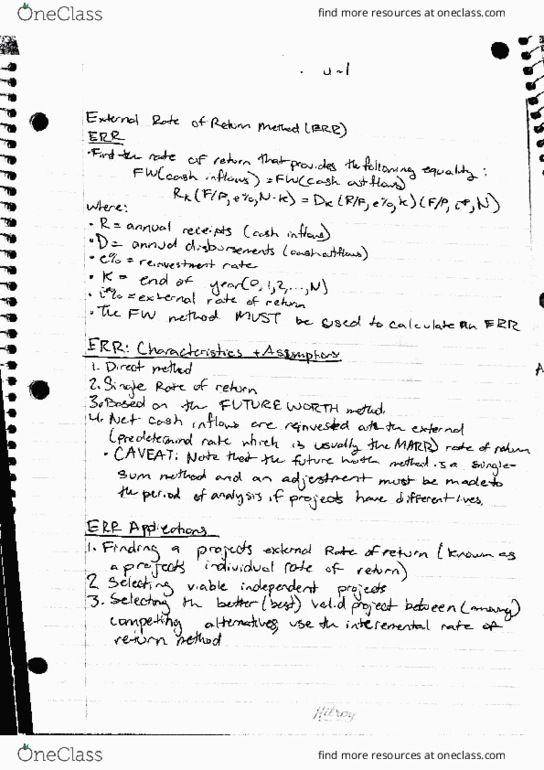 OneClass
find more resources at oneclass.com
External Rate of Return Method (ERR)
ERR
• Find the rate of return that provides the following equality:
FW(cash inflows) = FW(cash outflows)
Rk (F/P, e%, N-k) = Dk (P/F, e%, k) (F/P, i*, N)
where:
• R = annual receipts (cash inflows)
• D = annual disbursements (cash outflows)
• e% = reinvestment rate
• K = end of year (0, 1, 2, ..., N)
• i*% = external rate of return
• The FW method MUST be used to calculate an ERR
ERR: Characteristics + Assumptions
1. Direct method
2. Single Rate of return
3. Based on the FUTURE WORTH method.
4. Net cash inflows are reinvested at the external
(predetermind rate which is usually the MARR) rate of return
• CAVEAT: Note that the future worth method is a single-
sum method and an adjustment must be made to
the period of analysis if projects have different lives.
ERR Applications
1. Finding a projects external Rate of return (known as
a projects individual rate of return)
2. Selecting viable independent projects
3. Selecting the better (best) valid project between (among)
competing alternatives, use the incremental rate of
return method
Hilroy
OneClass
find more resources at oneclass.com